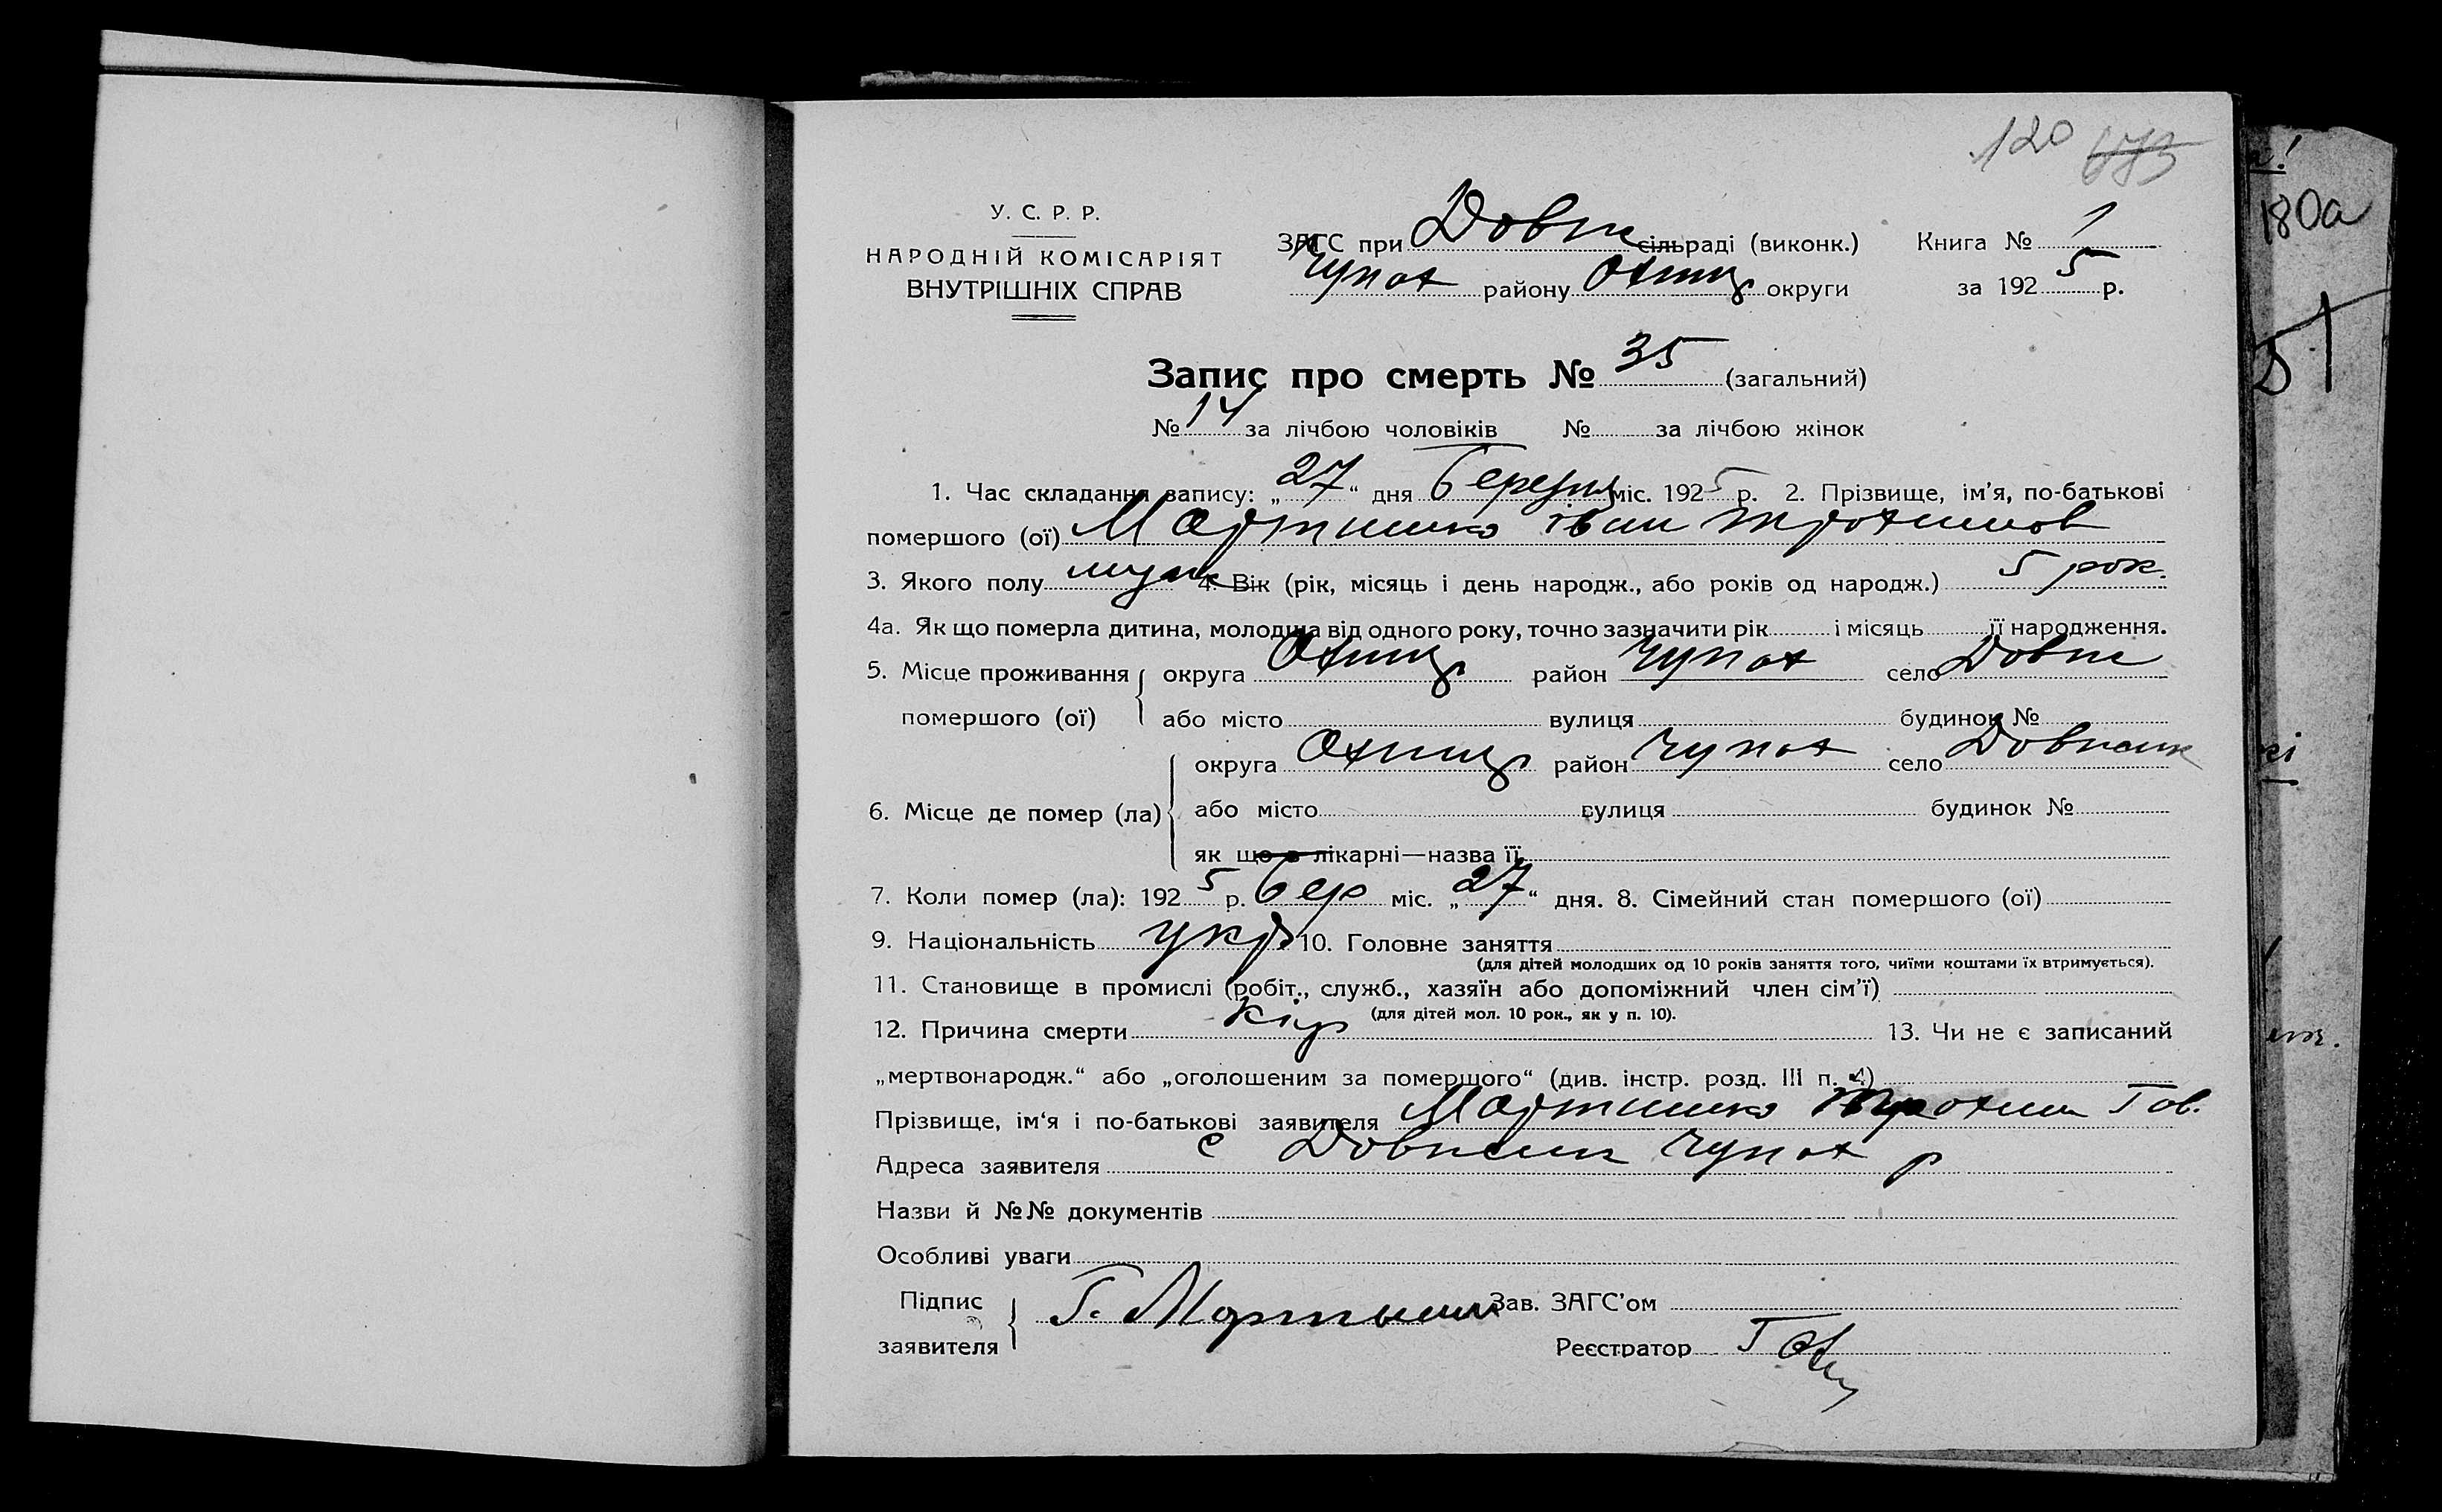 120
У. С. Р. Р.
НАРОДНІЙ КОМІСАРІЯТ
ВНУТРІШНІХ СПРАВ
ЗАГС при Довж сільраді (виконк.) Книга № 1
Чупах району Охтир округи за 1925 р.
Запис про смерть № 35 (загальний)
№ 14 за лічбою чоловіків № за лічбою жінок
1. Час складання запису: „27“ дня Березня міс. 1925 р. 2. Прізвище, ім'я, по-батькові
помершого (ої) Мартиненко Іван Трохимов
3. Якого полу муж 4. Вік (рік, місяць і день народж., або років од народж.) 5 рок.
4а. Як що померла дитина, молодша від одного року, точно зазначити рік і місяць її народження.
5. Місце проживання округа Охтир район Чупах село Довж
помершого (ої) або місто вулиця будинок №
округа Охтир район Чупах село Довжик
6. Місце де помер (ла) або місто вулиця будинок №
як що в лікарні—назва її
7. Коли помер (ла): 1925 р. бер міс. „27“ дня. 8. Сімейний стан помершого (ої)
9. Національність укр 10. Головне заняття
(для дітей молодших од 10 років заняття того, чиїми коштами їх втримується).
11. Становище в промислі (робіт., служб., хазяїн або допоміжний член сім'ї)
(для дітей мол. 10 рок., як у п. 10).
12. Причина смерти Кір 13. Чи не є записаний
„мертвонародж.“ або „оголошеним за помершого“ (див. інстр. розд. III п. 4)
Прізвище, ім'я і по-батькові заявителя Трохим Гав.
Адреса заявителя с Довжик Чупах р
Назви й №№ документів
Особливі уваги
Підпис Т. Зав. ЗАГС'ом
заявителя Реєстратор
180а